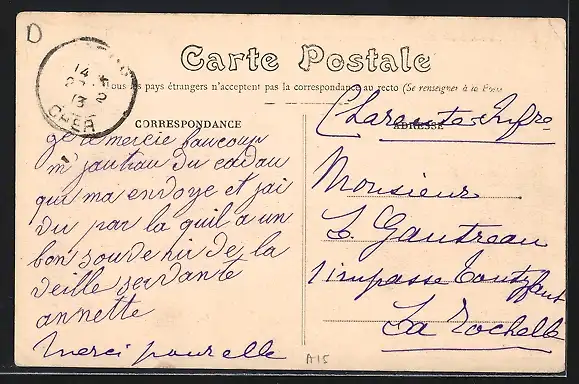 D
14
13
CHER
Carte Postale
Tous les pays étrangers n'acceptent pas la correspondance au recto (Se renseigner à la Poste
CORRESPONDANCE
ge remercie baucoup
m jautrau du cadau
qui ma envoye et jai
du par la quil a un
bon souvenir de la
veille servante
annette
merci pour elle
Charente Infre
ADRESSE
Monsieur
L. Gautreau
1 impasse Toutyfaut
La Rochelle
A15